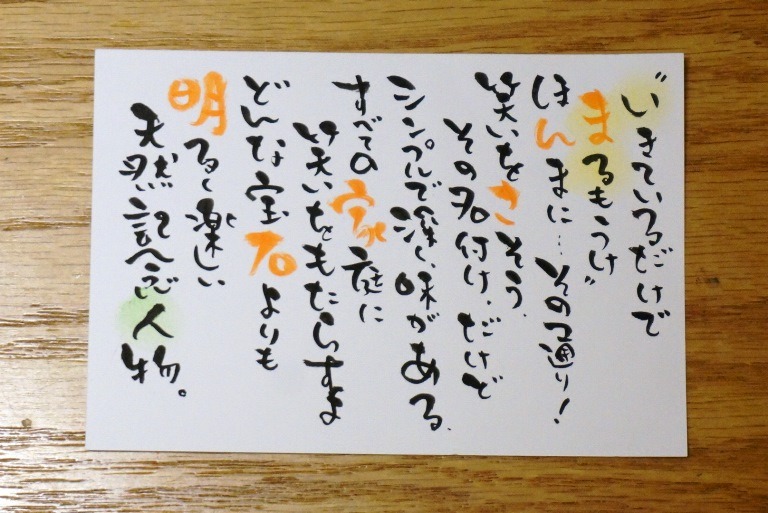 〝いきているだけで
まるもうけ〟
ほんまに…その通り！
笑いをさそう、
その名付け、だけど
シンプルで深い味がある、
すべての家庭に
笑いをもたらすよ
どんな宝石よりも
明るく楽しい
天然記念人物。